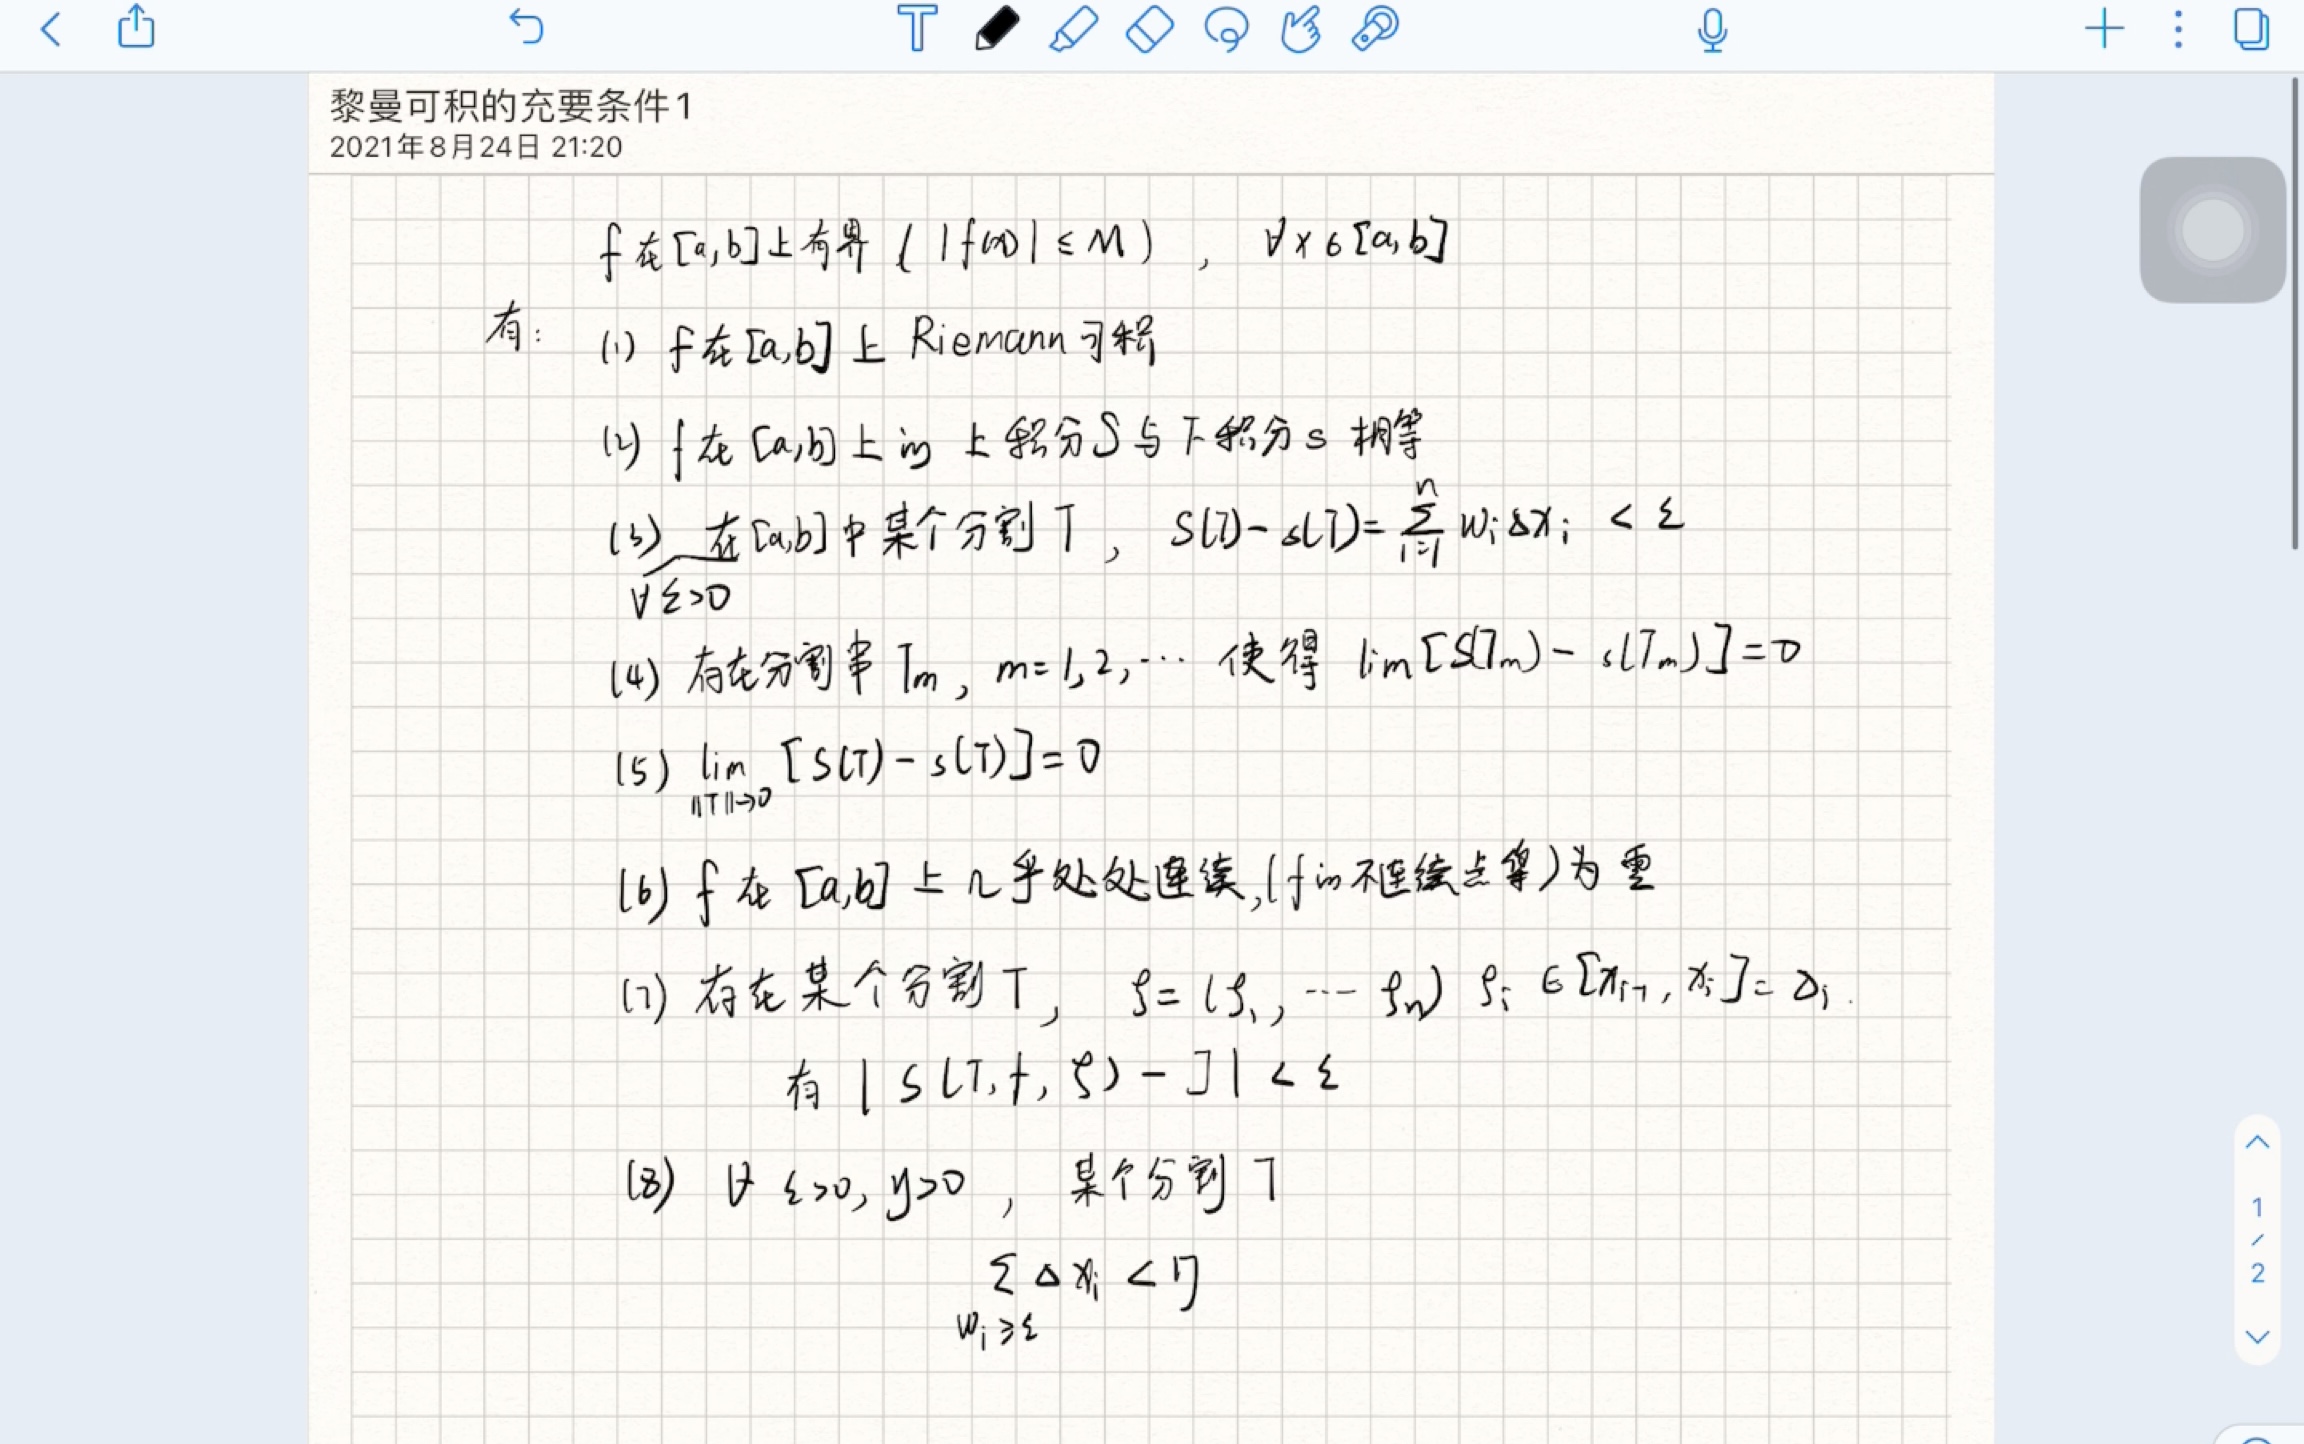 黎曼可积的充要条件1
2021年8月24日 21:20
f在[a,b]上有界 (|f(x)|≤M), ∀x∈[a,b]
有: (1) f在[a,b]上 Riemann可积
(2) f在[a,b]上的 上积分S与下积分s 相等
(3) 在[a,b]中某个分割T, S(T)-s(T)=∑_{i=1}^{n} ωiΔxi < ε
∀ε>0
(4) 存在分割串Tm, m=1,2,… 使得 lim[S(Tm)-s(Tm)]=0
(5) lim [S(T)-s(T)]=0
‖T‖→0
(6) f在[a,b]上几乎处处连续,(f的不连续点集)为零
(7) 存在某个分割T, ξ=(ξ1,…ξn) ξi∈[xi-1,xi]=Δi.
有 |S(T,f,ξ)-J|<ε
(8) ∀ ε>0, η>0, 某个分割T
∑Δxi<η
ωi≥ε
1
/
2